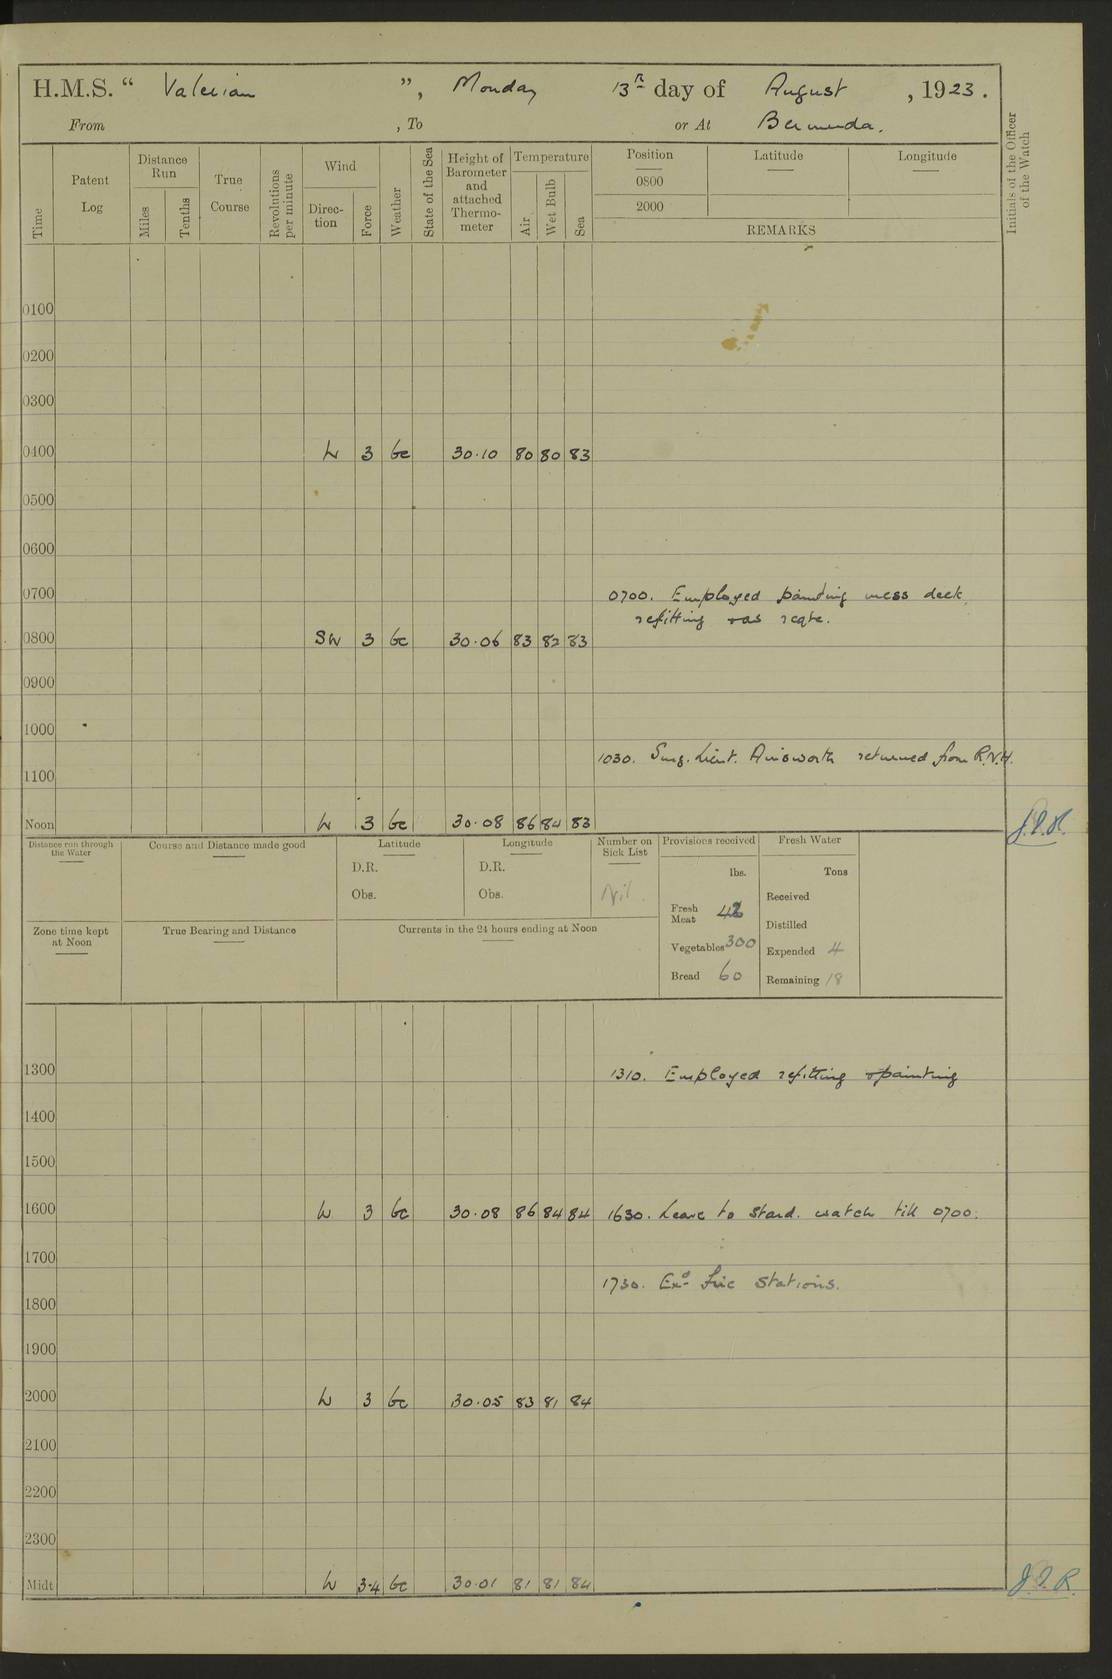 H.M.S. “ Valerian ”, Monday 13th day of August , 1923.
From , To or At Bermuda.
Time
Patent Log
Distance Run
Miles
Tenths
True Course
Revolutions per minute
Wind
Direc-tion
Force
Weather
State of the Sea
Height of Barometer and attached Thermo-meter
Temperature
Air
Wet Bulb
Sea
Position
0800
2000
Latitude
Longitude
REMARKS
Initials of the Officer of the Watch
0100
0200
0300
0400 W 3 bc 30.10 80 80 83
0500
0600
0700 0700. Employed painting mess deck,
refitting &as reqte.
0800 SW 3 bc 30.06 83 82 83
0900
1000
1030. Surg. Lieut. Ainsworth returned from R.N.H.
1100
Noon W 3 bc 30.08 86 84 83
Distance run through the Water
Course and Distance made good
Latitude
D.R.
Obs.
Longitude
D.R.
Obs.
Number on Sick List
Nil.
Provisions received
lbs.
Fresh Meat
Vegetables 300
Bread 60
Fresh Water
Tons
Received
Distilled
Expended 4
Remaining 18
Zone time kept at Noon
True Bearing and Distance
Currents in the 24 hours ending at Noon
1300 1310. Employed refitting & painting
1400
1500
1600 W 3 bc 30.08 86 84 84 1630. Leave to Stard. watch till 0700.
1700
1730. Exd. fire Stations.
1800
1900
2000 W 3 bc 30.05 83 81 84
2100
2200
2300
Midt W 3.4 bc 30.01 81 81 84